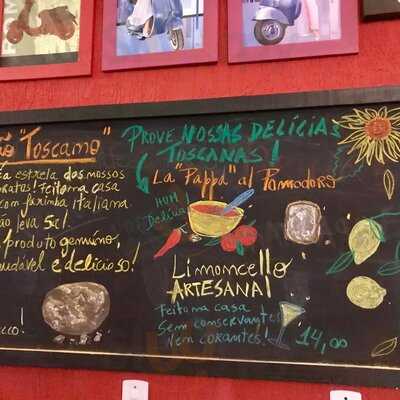 ão "Toscano"
a estrela dos nossos
pratos! Feito na casa
com farinha italiana
não leva sal.
produto genuíno,
saudável e delicioso!
PROVE NOSSAS DELÍCIAS
TOSCANAS!
LA "PAPPA" al Pomodoro
HUM!
Delícia!
Limoncello
ARTESANAL
Feito na casa
Sem conservantes
Nem corantes!
14,00